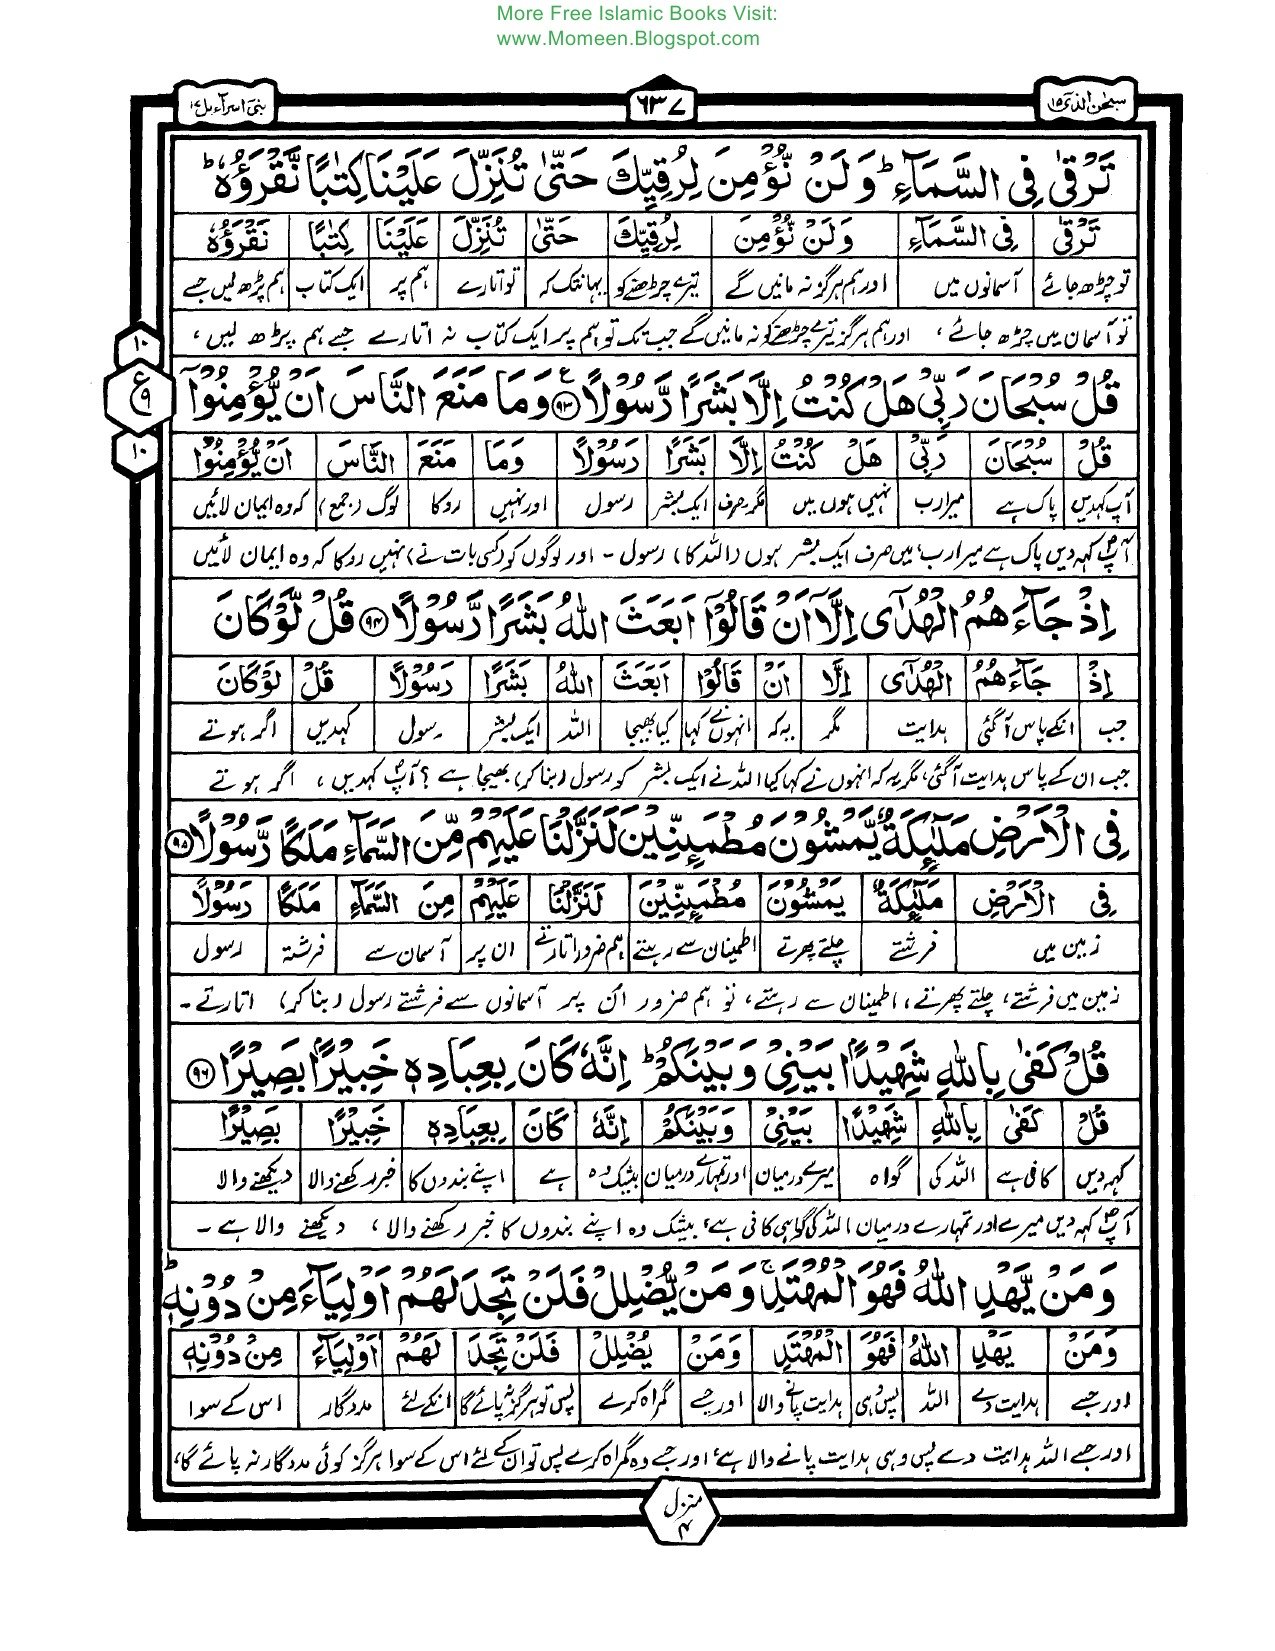 More Free Islamic Books Visit:
www.Momeen.Blogspot.com
سبحن الذی ۱۵
۶۳۷
بنی اسرآءیل ۱۷
تَرْقٰی فِی السَّمَآءِ ؕ وَلَنْ نُّؤْمِنَ لِرُقِیِّكَ حَتّٰی تُنَزِّلَ عَلَیْنَا كِتٰبًا نَّقْرَؤُهٗ ؕ
تَرْقٰی فِی السَّمَآءِ وَلَنْ نُّؤْمِنَ لِرُقِیِّكَ حَتّٰی تُنَزِّلَ عَلَیْنَا كِتٰبًا نَقْرَؤُهٗ
تو چڑھ جائے آسمانوں میں اور ہم ہرگز نہ مانیں گے تیرے چڑھنے کو یہانتک کہ تو اتارے ہم پر ایک کتاب ہم پڑھ لیں جسے
تو آسمان میں چڑھ جائے، اور ہم ہرگز تیرے چڑھنے کو نہ مانیں گے جب تک تو ہم پر ایک کتاب نہ اتارے جسے ہم پڑھ لیں،
۱۰
ع
۹
۱۰
قُلْ سُبْحَانَ رَبِّیْ هَلْ كُنْتُ اِلَّا بَشَرًا رَّسُوْلًا ﴿۹۳﴾ وَمَا مَنَعَ النَّاسَ اَنْ یُّؤْمِنُوْۤا
قُلْ سُبْحَانَ رَبِّیْ هَلْ كُنْتُ اِلَّا بَشَرًا رَسُوْلًا وَمَا مَنَعَ النَّاسَ اَنْ یُّؤْمِنُوْۤا
آپ کہدیں پاک ہے میرا رب نہیں ہوں میں مگر صرف ایک بشر رسول اور نہیں روکا لوگ (جمع) کہ وہ ایمان لائیں
آپؐ کہہ دیں پاک ہے میرا رب، میں صرف ایک بشر ہوں (اللہ کا) رسول - اور لوگوں کو (کسی بات نے) نہیں روکا کہ وہ ایمان لائیں
اِذْ جَآءَهُمُ الْهُدٰۤی اِلَّاۤ اَنْ قَالُوْۤا اَبَعَثَ اللّٰهُ بَشَرًا رَّسُوْلًا ﴿۹۴﴾ قُلْ لَّوْ كَانَ
اِذْ جَآءَهُمُ الْهُدٰۤی اِلَّا اَنْ قَالُوْۤا اَبَعَثَ اللّٰهُ بَشَرًا رَسُوْلًا قُلْ لَوْ كَانَ
جب انکے پاس آگئی ہدایت مگر یہ کہ انہوں نے کہا کیا بھیجا اللہ ایک بشر رسول کہدیں اگر ہوتے
جب ان کے پاس ہدایت آگئی، مگر یہ کہ انہوں نے کہا کیا اللہ نے ایک بشر کو رسول (بنا کر) بھیجا ہے ؟ آپؐ کہدیں، اگر ہوتے
فِی الْاَرْضِ مَلٰٓىِٕكَةٌ یَّمْشُوْنَ مُطْمَىِٕنِّیْنَ لَنَزَّلْنَا عَلَیْهِمْ مِّنَ السَّمَآءِ مَلَكًا رَّسُوْلًا ﴿۹۵﴾
فِی الْاَرْضِ مَلٰٓىِٕكَةٌ یَمْشُوْنَ مُطْمَىِٕنِّیْنَ لَنَزَّلْنَا عَلَیْهِمْ مِنَ السَّمَآءِ مَلَكًا رَسُوْلًا
زمین میں فرشتے چلتے پھرتے اطمینان سے رہتے ہم ضرور اتارتے ان پر آسمان سے فرشتہ رسول
زمین میں فرشتے، چلتے پھرتے، اطمینان سے رہتے، تو ہم ضرور اُن پر آسمانوں سے فرشتے رسول (بنا کر) اتارتے -
قُلْ كَفٰی بِاللّٰهِ شَهِیْدًۢا بَیْنِیْ وَبَیْنَكُمْ ؕ اِنَّهٗ كَانَ بِعِبَادِهٖ خَبِیْرًۢا بَصِیْرًا ﴿۹۶﴾
قُلْ كَفٰی بِاللّٰهِ شَهِیْدًۢا بَیْنِیْ وَبَیْنَكُمْ اِنَّهٗ كَانَ بِعِبَادِهٖ خَبِیْرًۢا بَصِیْرًا
کہدیں کافی ہے اللہ کی گواہ میرے درمیان اور تمہارے درمیان بیشک وہ ہے اپنے بندوں کا خبر رکھنے والا دیکھنے والا
آپؐ کہہ دیں میرے اور تمہارے درمیان اللہ کی گواہی کافی ہے، بیشک وہ اپنے بندوں کا خبر رکھنے والا، دیکھنے والا ہے -
وَمَنْ یَّهْدِ اللّٰهُ فَهُوَ الْمُهْتَدِ ۚ وَمَنْ یُّضْلِلْ فَلَنْ تَجِدَ لَهُمْ اَوْلِیَآءَ مِنْ دُوْنِهٖ ؕ
وَمَنْ یَهْدِ اللّٰهُ فَهُوَ الْمُهْتَدِ وَمَنْ یُضْلِلْ فَلَنْ تَجِدَ لَهُمْ اَوْلِیَآءَ مِنْ دُوْنِهٖ
اور جسے ہدایت دے اللہ پس وہی ہدایت پانے والا اور جسے گمراہ کرے پس تو ہرگز نہ پائے گا انکے لئے مددگار اس کے سوا
اور جسے اللہ ہدایت دے پس وہی ہدایت پانے والا ہے، اور جسے وہ گمراہ کرے پس تو اُن کے لئے اس کے سوا ہرگز کوئی مددگار نہ پائے گا،
منزل
۴